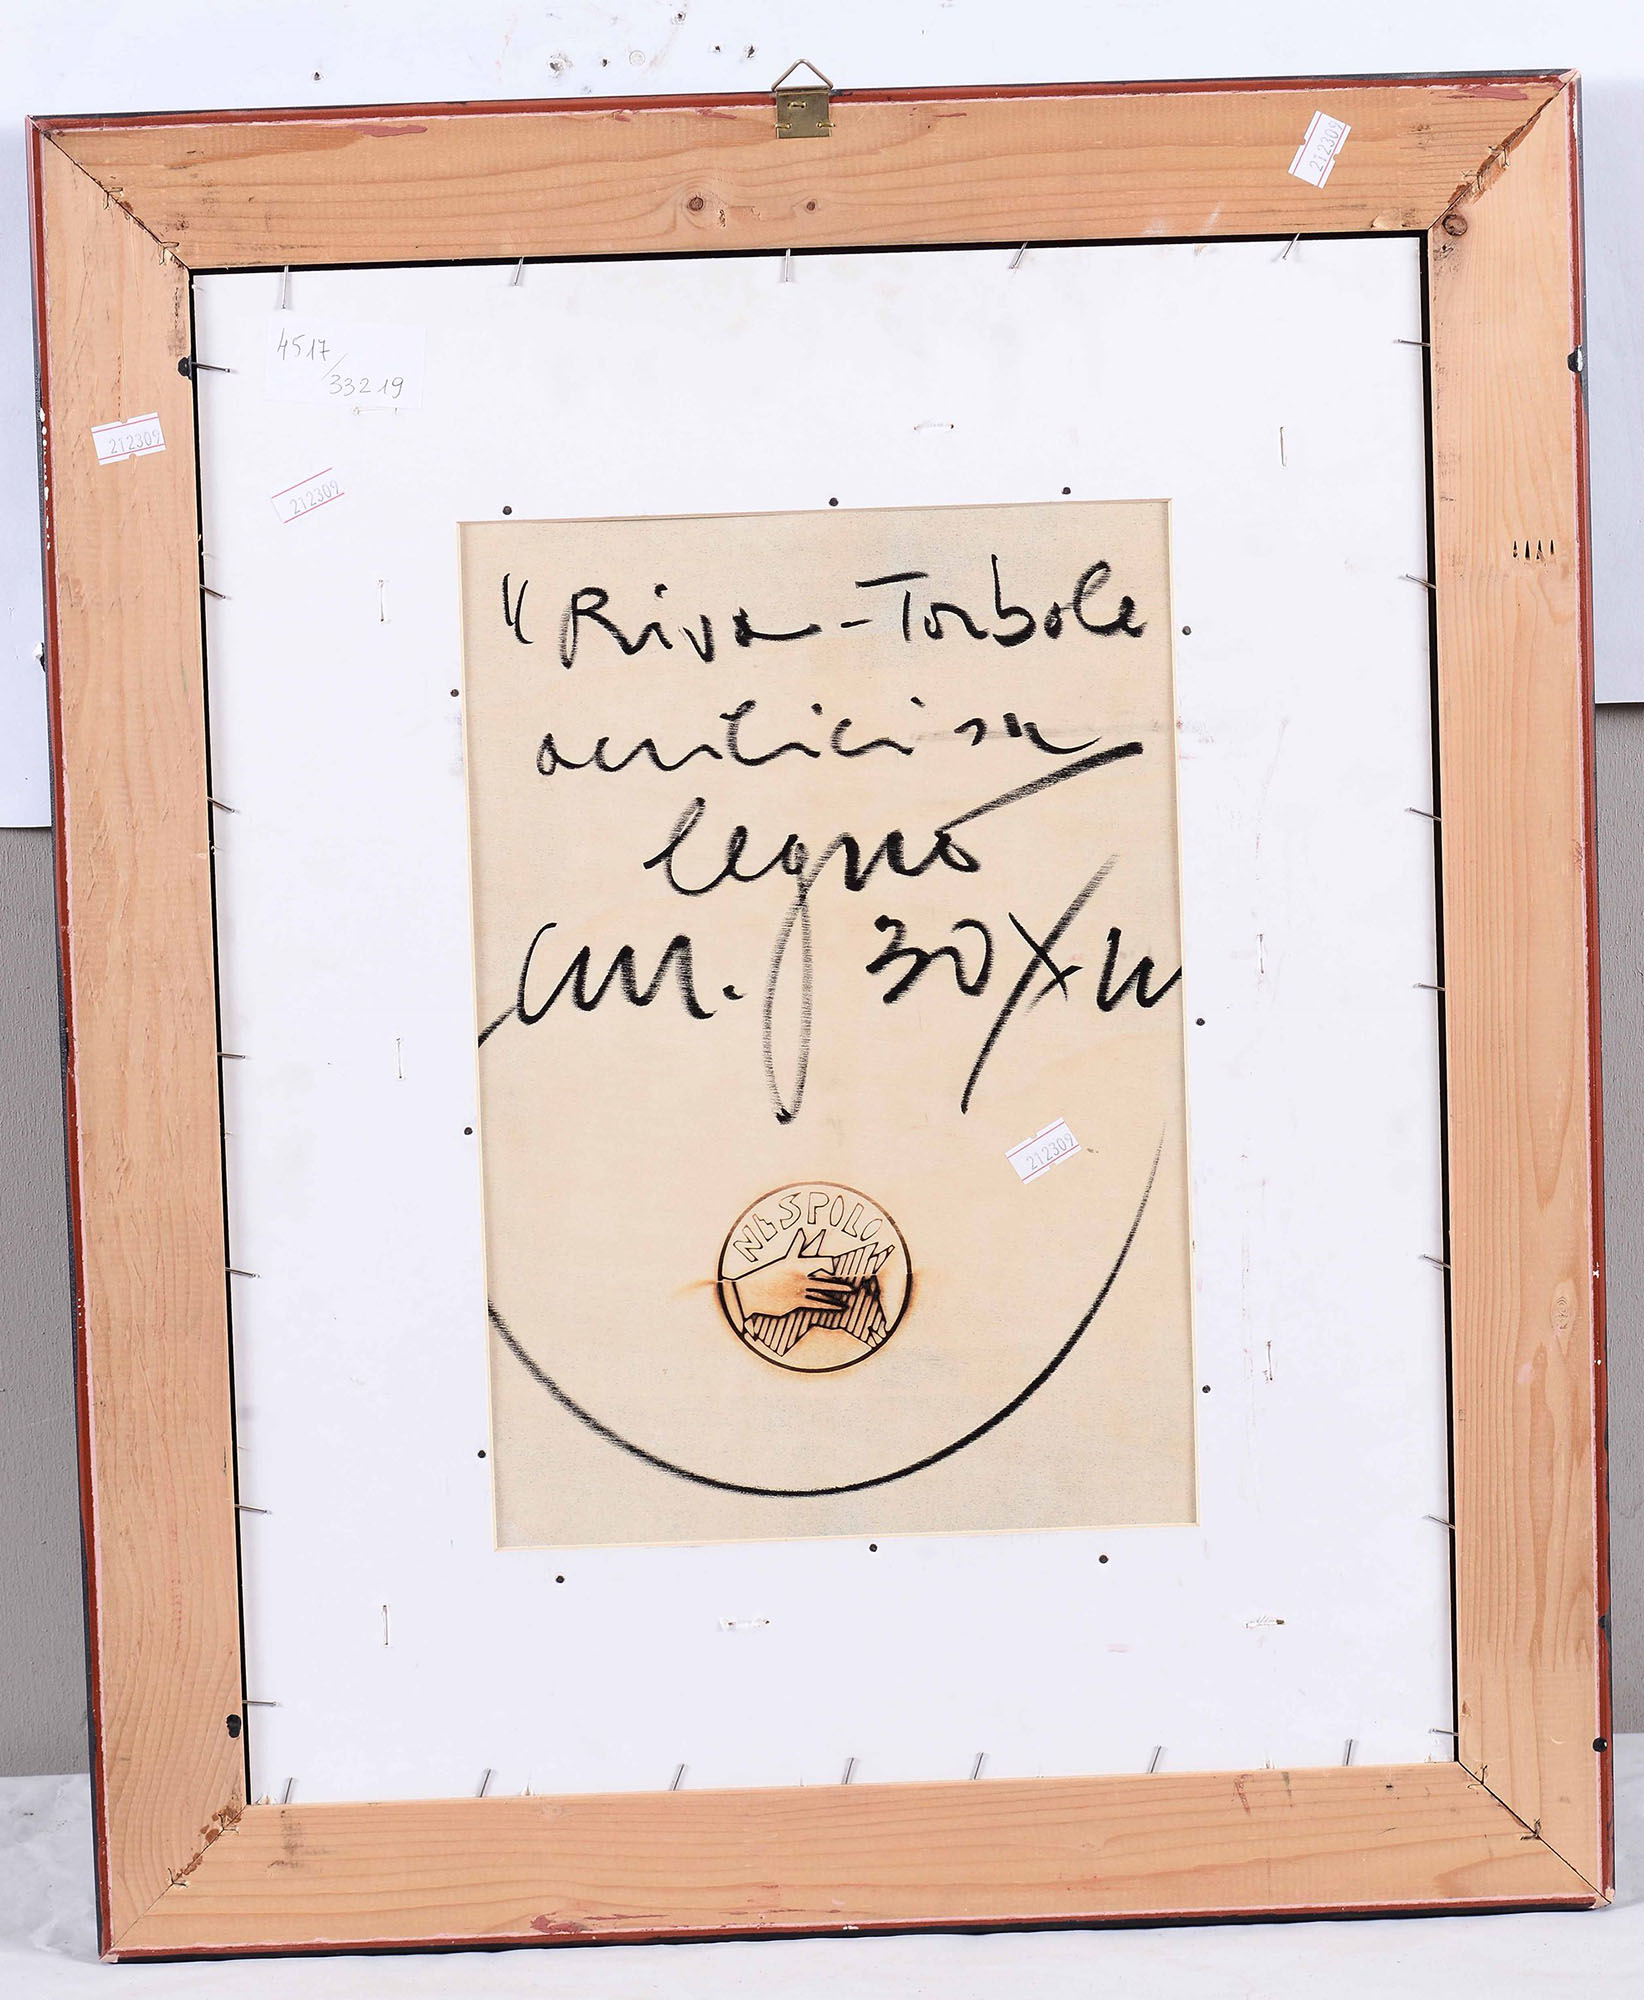 212309
4517/
33219
212309
212309
"Riva - Torbole
acrilici su
legno
cm. 30 X
212309
NESPOLO